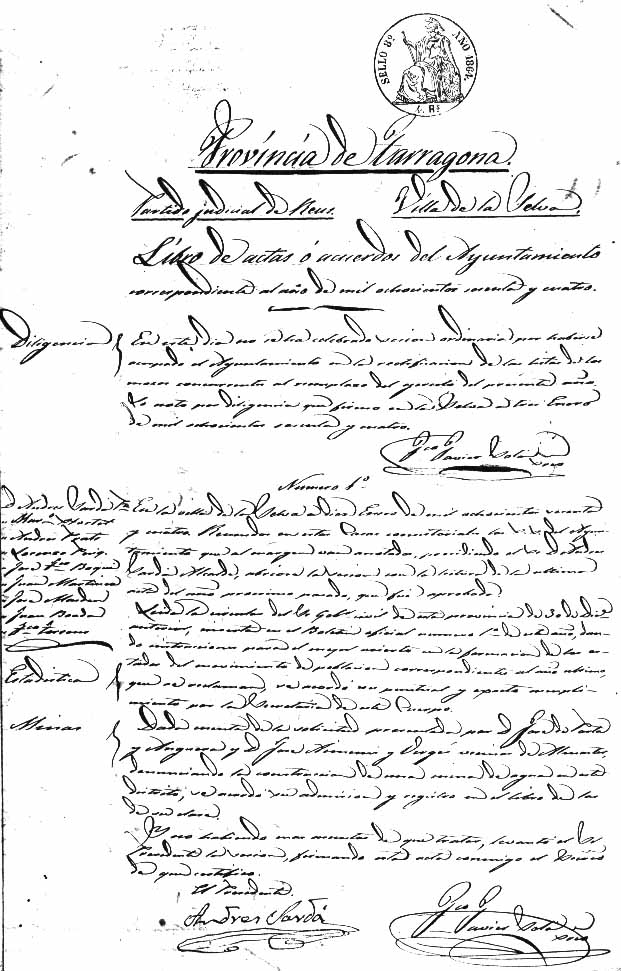 SELLO 8º AÑO 1864.
4. Rs
Província de Tarragona.
Partido judicial de Reus. Villa de la Selva.
Libro de actas ó acuerdos del Ayuntamiento
correspondiente al año de mil ochocientos sesenta y cuatro.
Diligencia
En este dia no se ha celebrado sesion ordinaria por haberse
ocupado el Ayuntamiento en la rectificacion de las listas de los
mozos concurrentes al reemplazo del ejercito del presente año.
Lo noto por diligencia que firmo en la Selva a tres Enero
de mil ochocientos sesenta y cuatro.
Franco Javier Solá
Srio
Numero 1º
D. Andres Sardá
Jose Martinez
Juan
En la villa de la Selva a diez Enero de mil ochocientos sesenta
y cuatro. Reunidos en estas Casas consistoriales los Sres del Ayun-
tamiento que al margen van anotados, presididos el Sr D. Andres
Sardá Alcalde, abriose la sesion con la lectura de la ultima
acta del año proximo pasado, que fué aprobada.
Estadistica
Leida la circular del Sr Gobr civil de esta provincia de 30 de Di-
inserta en el Boletin oficial numero 1º de este año, dan-
do instrucciones para el mayor acierto en la formacion de los es-
tados del movimiento de poblacion correspondientes al año ultimo,
que se reclaman, se acordó su puntual y exacto cumpli-
miento por la Secretaria de este Cuerpo.
Minas
Dada cuenta de la solicitud presentada por D. José de
y Noguera y D. José y vecinos de
denunciando la de una mina de agua en este
distrito, se acordó su admision y registro en el libro de las
de su clase.
Y no habiendo mas asuntos de que tratar, levantó el Sr
Presidente la sesion, firmando esta acta conmigo el Srio
de que certifico.
El Presidente.
Andres Sardá
Franco Javier Solá
Srio